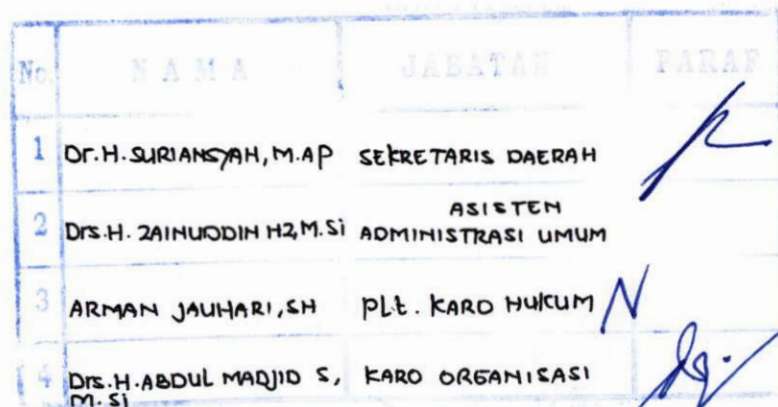 No. NAMA JABATAN PARAF
1 Dr.H.SURIANSYAH, M.AP SEKRETARIS DAERAH
2 Drs.H. ZAINUDDIN HZ, M.Si ASISTEN
ADMINISTRASI UMUM
3 ARMAN JAUHARI, SH Plt. KARO HUKUM
4 Drs.H.ABDUL MADJID S, KARO ORGANISASI
M.Si